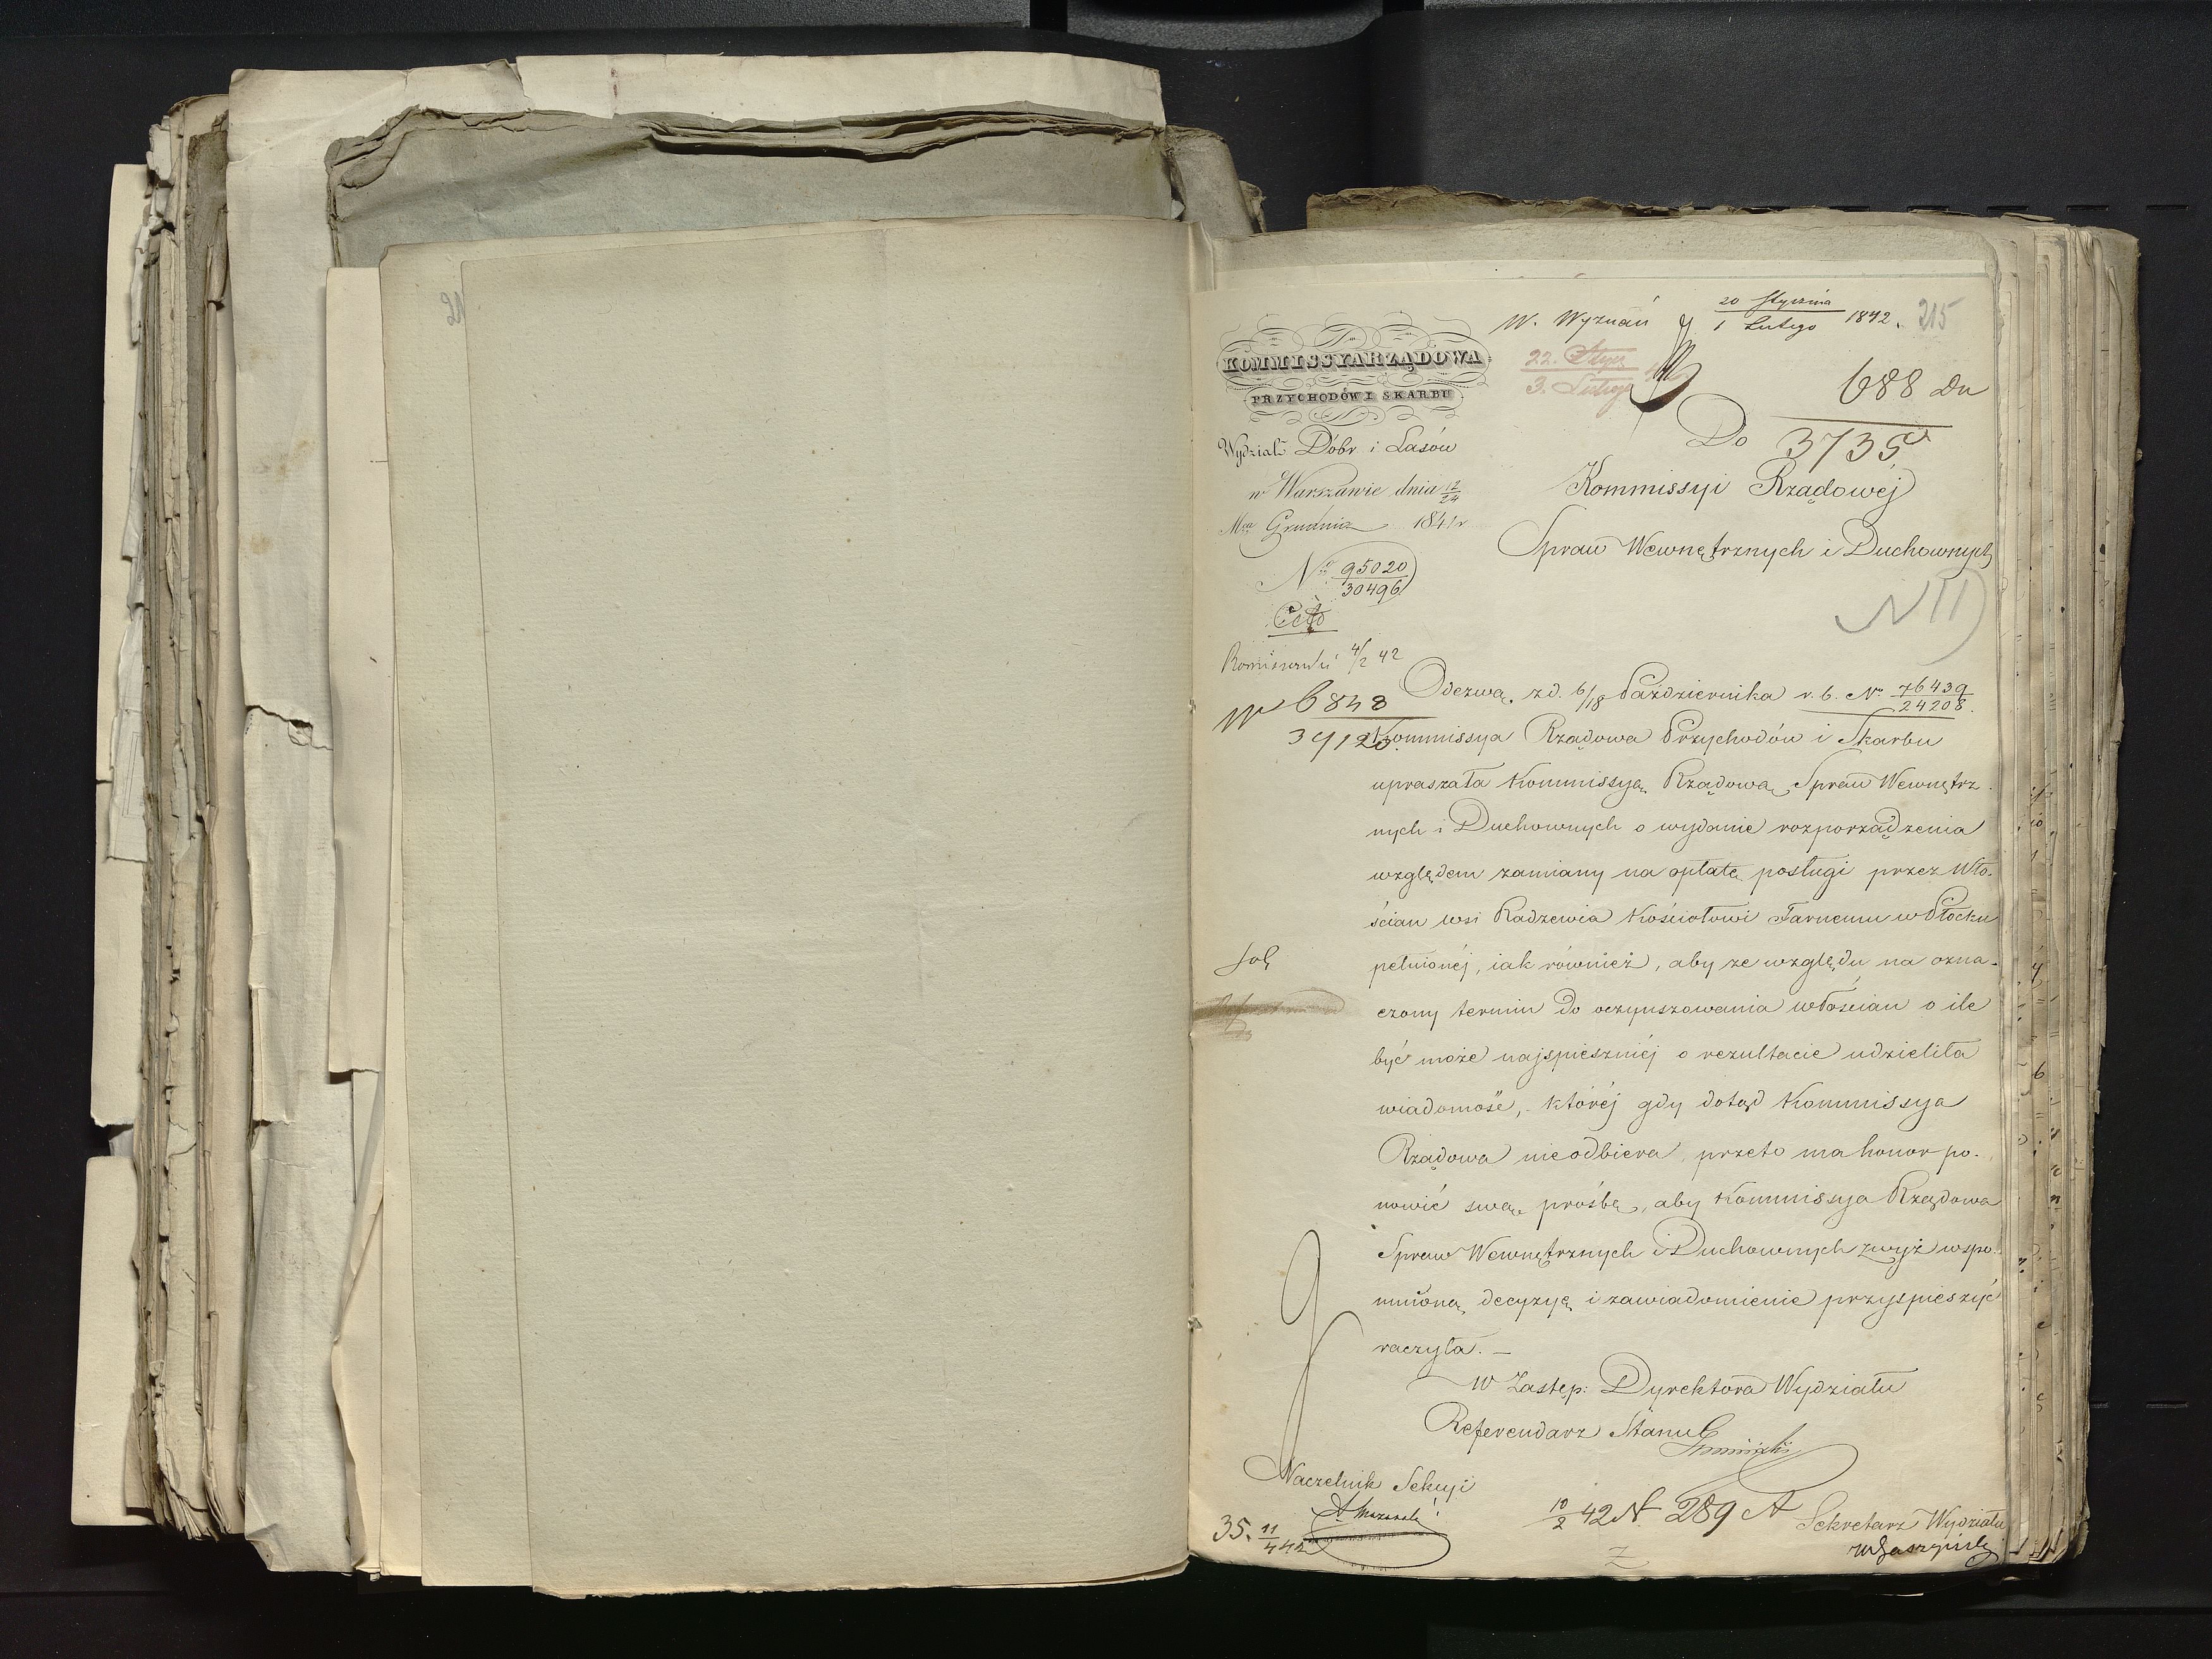 W. Wyznań
20 Stycznia
1 Lutego 1842.
215
22. Stycz
3. Lutego
688 Du
3735
KOMMISSYA RZĄDOWA
PRZYCHODÓW I SKARBU
Wydział Dóbr i Lasów
w Warszawie dnia 12/24
Mca Grudnia 1841 r
No 95020/30496
Cito
4/2 42
Do
Kommissyi Rządowéj
Spraw Wewnętrznych i Duchownych
N 11)
6848
39120
Odezwą z d. 6/18 Października r. b. No 76439/24208
Kommissya Rządowa Przychodów i Skarbu
upraszała Kommissyą Rządową Spraw Wewnętrz.
nych i Duchownych o wydanie rozporządzenia
względem zamiany na opłatę posługi przez Wło.
ścian wsi Radzewia Kościołowi Farnemu w Płocku
pełnionéj, iak również, aby ze względu na ozna-
czony termin do oczynszowania włościan o ile
być może najspieszniéj o rezultacie udzieliła
wiadomość, któréj gdy dotąd Kommissya
Rządowa nieodbiera, przeto ma honor po.
nowić swą prośbę, aby Kommissya Rządowa
Spraw Wewnętrznych i Duchownych zwyż wspo.
mnioną decyzyę i zawiadomienie przyspieszyć
raczyła. —
W Zastęp: Dyrektora Wydziału
Referendarz Stanu
Naczelnik Sekcyi
35. 11/4 42
10/2 42 N 289 A
Sekretarz Wydziału